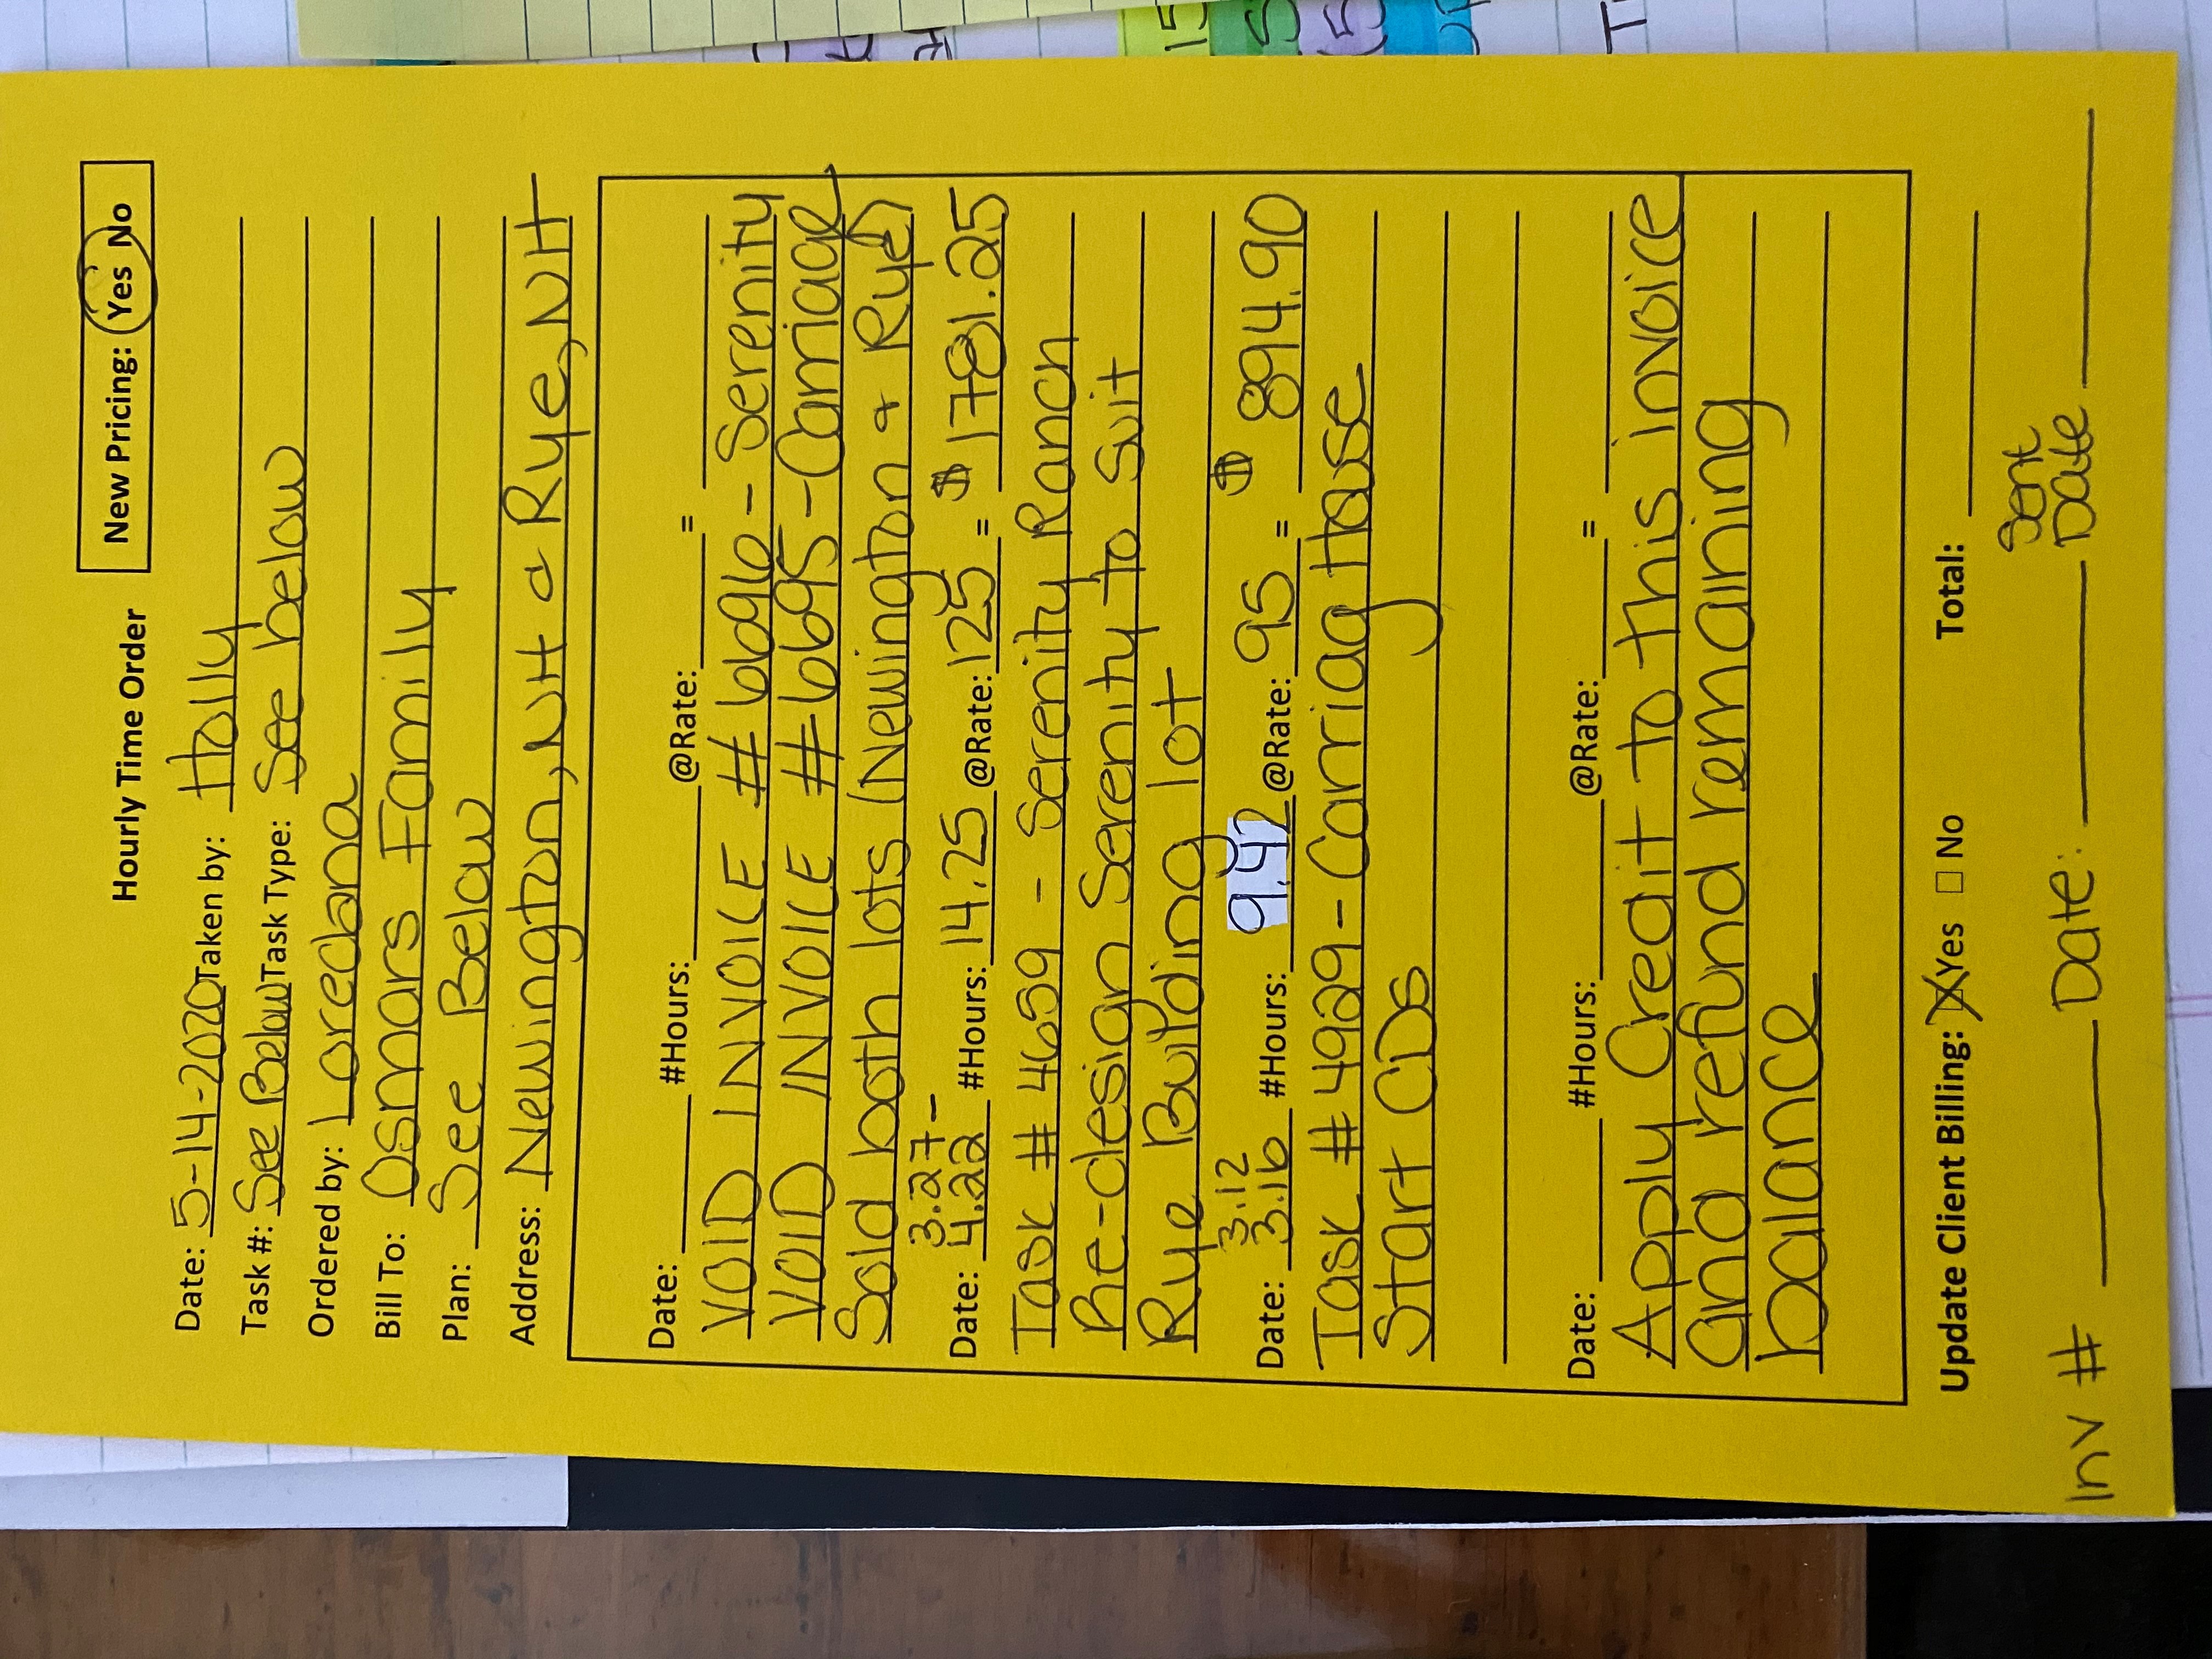 Hourly Time Order
New Pricing: Yes No
Date: 5-14-2020 Taken by: Holly
Task #: See Below Task Type: See below
Ordered by: Loredana
Bill To: Osmars Family
Plan: See Below
Address: Newington, NH & Rye, NH
Date: #Hours: @Rate: =
VOID INVOICE #6696 - Serenity
VOID INVOICE #6695 - Carriage
Sold both lots (Newington & Rye)
3.27-
Date: 4.22 #Hours: 14.25 @Rate: 125 = $1781.25
Task #4659 - Serenity Ranch
Re-design Serenity to Suit
Rye Building lot
3.12
Date: 3.16 #Hours: 9.42 @Rate: 95 = $894.90
Task #4929 - Carriag House
Start CDs
Date: #Hours: @Rate: =
Apply Credit to this invoice
and refund remaining
balance
Update Client Billing: Yes No Total:
Sent
Inv # Date: Date
15
5